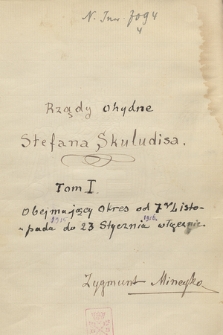 N. Inw. 7094
4
Rządy ohydne
Stefana Skuludisa.
Tom I.
Obejmujący Okres od 7go Listo-
pada 1915 do 23 Stycznia 1916 włącznie.
Zygmunt Mineyko